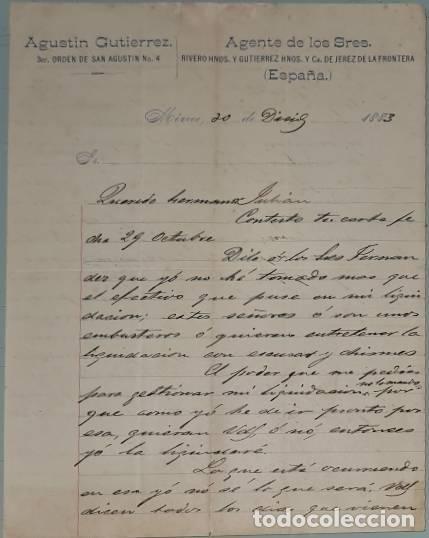 Agustin Gutierrez.
3er. ORDEN DE SAN AGUSTIN No. 4
Agente de los Sres.
RIVERO HNOS. Y GUTIERREZ HNOS. Y Ca. DE JEREZ DE LA FRONTERA
(España.)
México, 30 de Dicie 1883
Sr.
Querido hermano Julián
Contesto tu carta fe
cha 29 Octubre
Dile á los Sres Fernan
dez que yó no hé tomado mas que
el efectivo que puse en mi liqui
dacion; estos señores ó son unos
embusteros ó quieren entretener la
liquidacion con escusas y chismes
El poder que me pedias
para gestionar mi liquidacion, no lo mando, por
que como yó he de ir pronto por
esa, quieran Vds ó nó entonces
yo la liquidaré.
Lo que está ocurriendo
en esa yó no sé lo que será. Vds
dicen todos los dias que vienen
todocoleccion.net